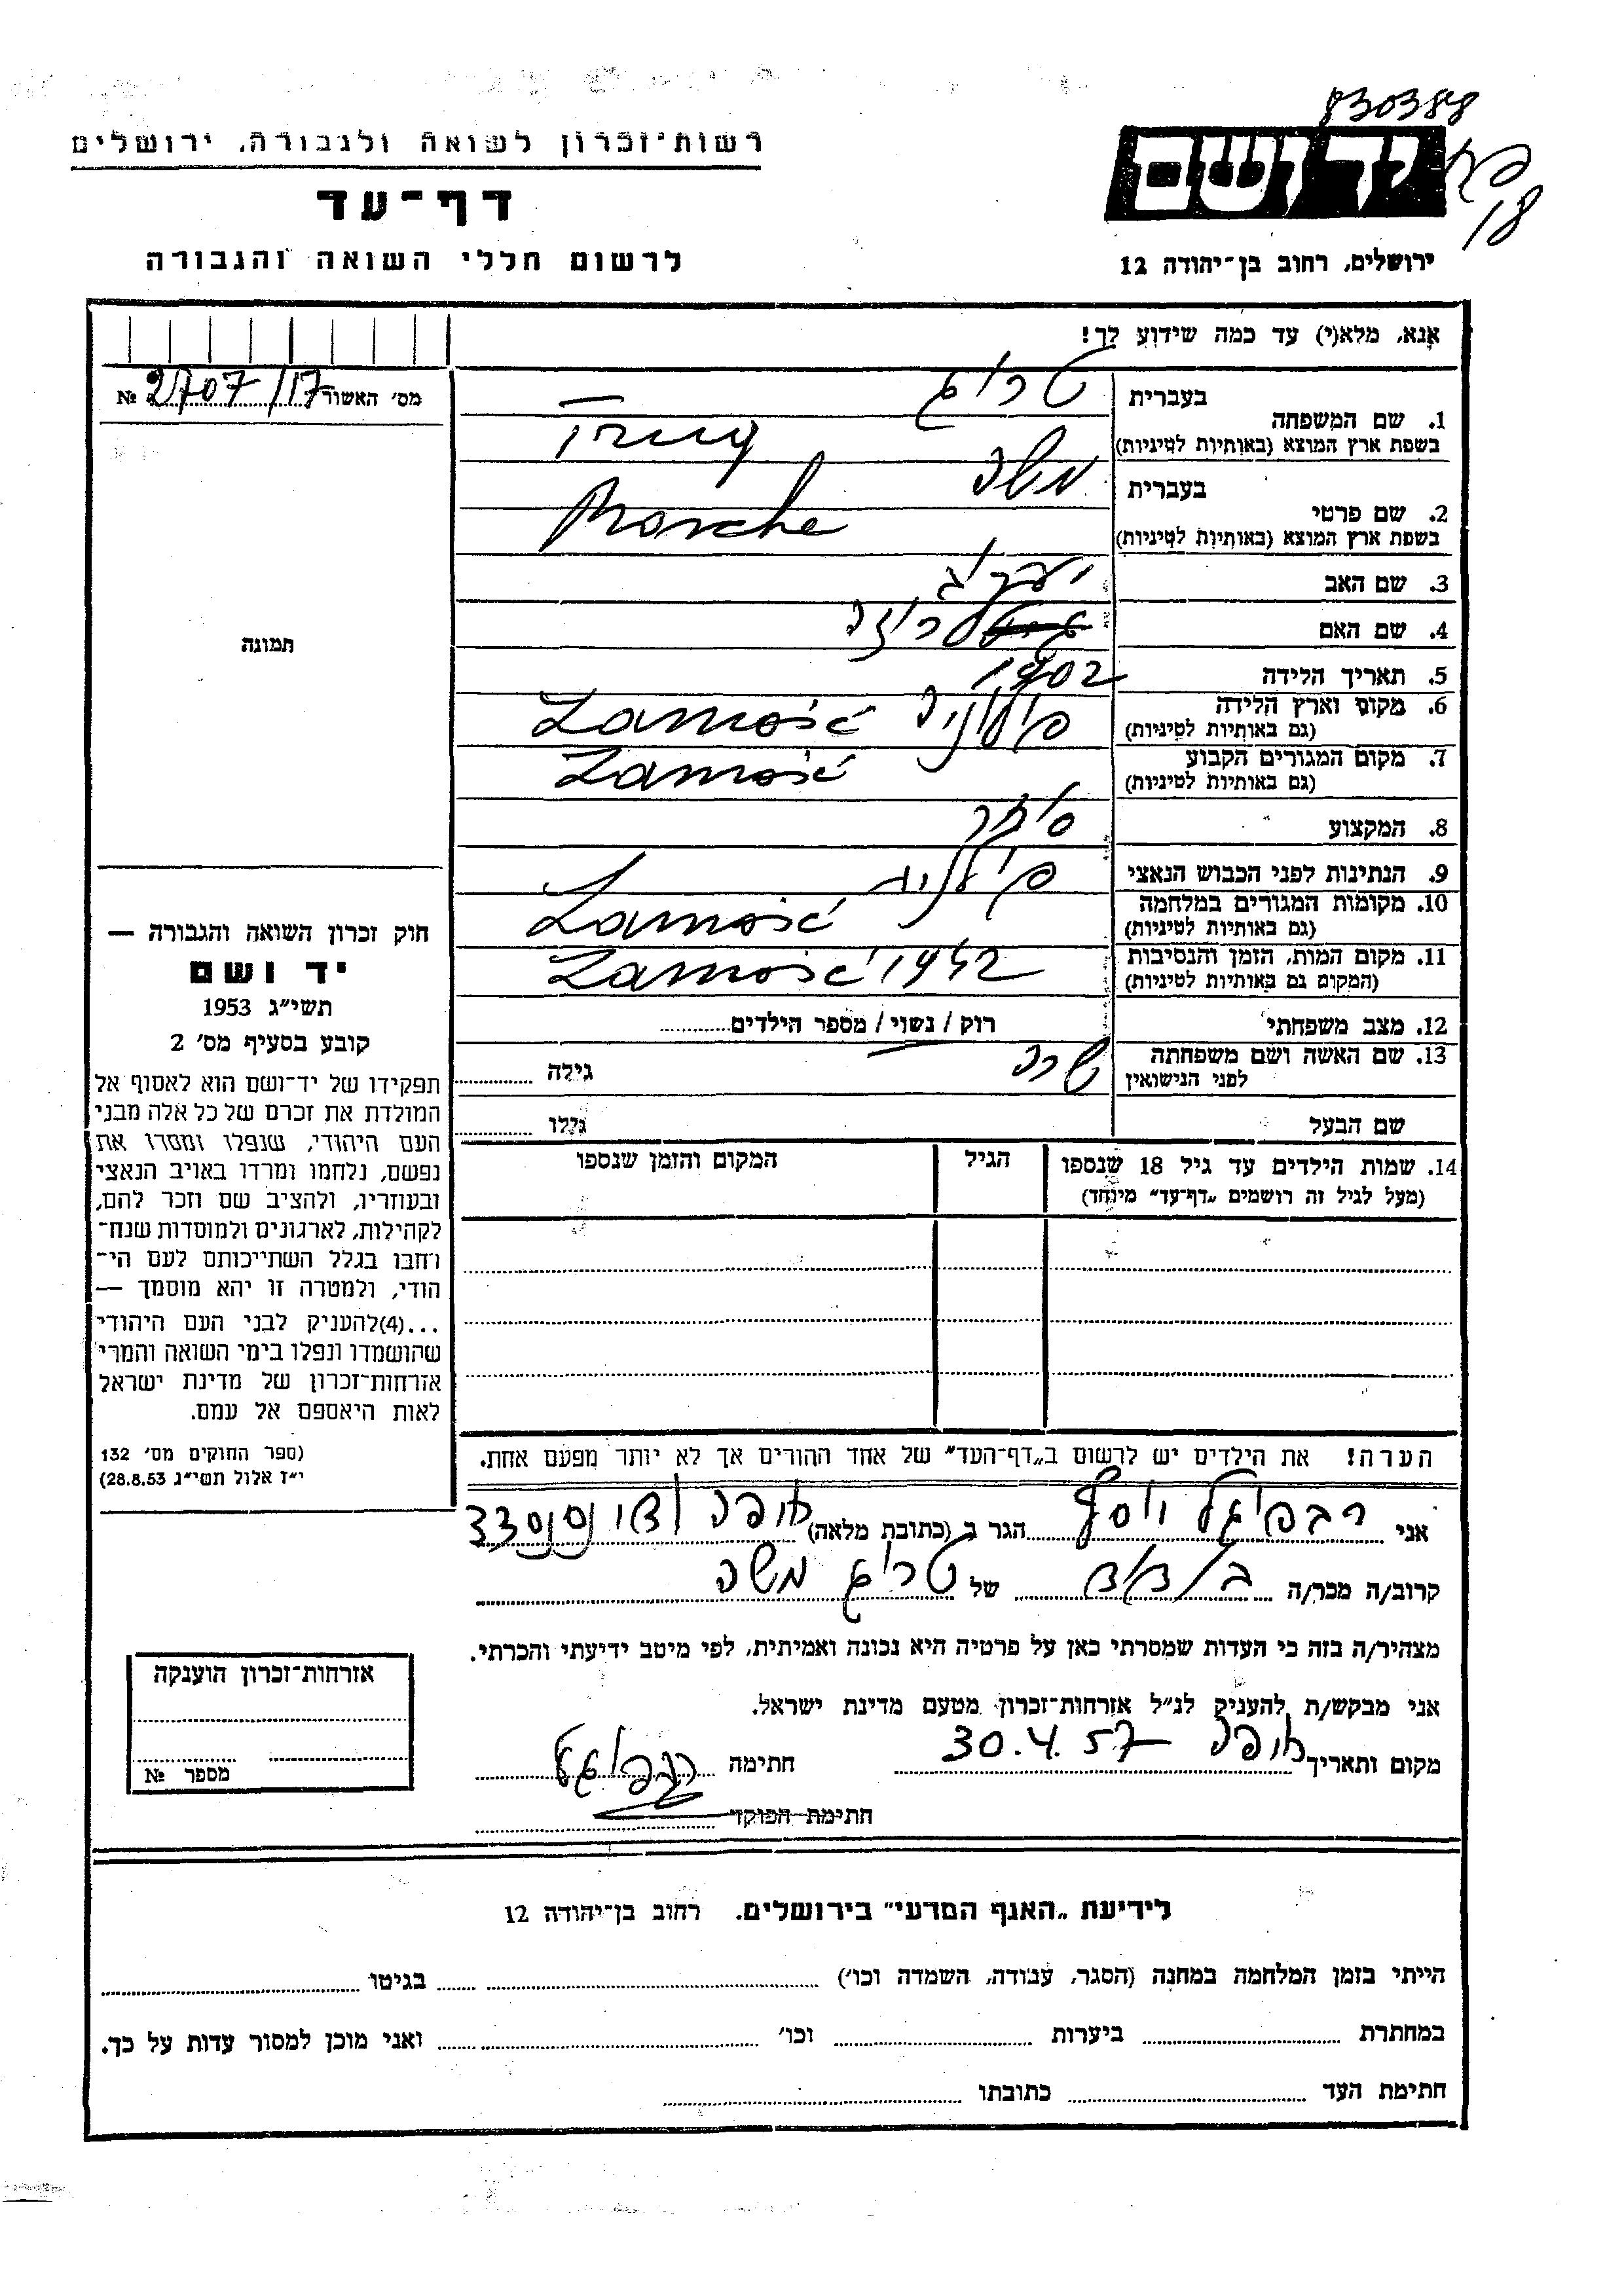 830388
רשות־זכרון לשואה ולגבורה, ירושלים
יד ושם
18
דף־עד
לרשום חללי השואה והגבורה
ירושלים, רחוב בן־יהודה 12
אנא, מלא(י) עד כמה שידוע לך!
מס׳ האשור 2707/17 №
1. שם המשפחה
בעברית טריג
בשפת ארץ המוצא (באותיות לטיניות)
2. שם פרטי
בעברית משה
בשפת ארץ המוצא (באותיות לטיניות) Mosche
3. שם האב יעקב
4. שם האם
5. תאריך הלידה 1902
6. מקום וארץ הלידה פולניה Zamość
(גם באותיות לטיניות)
7. מקום המגורים הקבוע Zamość
(גם באותיות לטיניות)
8. המקצוע סוחר
9. הנתינות לפני הכבוש הנאצי פולנית
10. מקומות המגורים במלחמה Zamość
(גם באותיות לטיניות)
11. מקום המות, הזמן והנסיבות Zamość 1942
(המקום גם באותיות לטיניות)
12. מצב משפחתי רוק / נשוי / מספר הילדים
13. שם האשה ושם משפחתה שרה גילה
לפני הנישואין
שם הבעל גילו
14. שמות הילדים עד גיל 18 שנספו הגיל המקום והזמן שנספו
(מעל לגיל זה רושמים „דף־עד״ מיוחד)
תמונה
חוק זכרון השואה והגבורה —
יד ושם
תשי״ג 1953
קובע בסעיף מס׳ 2
תפקידו של יד־ושם הוא לאסוף אל
המולדת את זכרם של כל אלה מבני
העם היהודי, שנפלו ומסרו את
נפשם, נלחמו ומרדו באויב הנאצי
ובעוזריו, ולהציב שם וזכר להם,
לקהילות, לארגונים ולמוסדות שנח־
רבו בגלל השתייכותם לעם הי־
הודי, ולמטרה זו יהא מוסמך —
...(4)להעניק לבני העם היהודי
שהושמדו ונפלו בימי השואה והמרי
אזרחות־זכרון של מדינת ישראל
לאות היאספם אל עמם.
(ספר החוקים מס׳ 132
י״ז אלול תשי״ג 28.8.53)
הערה! את הילדים יש לרשום ב„דף־העד״ של אחד ההורים אך לא יותר מפעם אחת.
אני יוסף הגר ב (כתובת מלאה) חיפה
קרוב/ה מכר/ה בן דוד של טריג משה
מצהיר/ה בזה כי העדות שמסרתי כאן על פרטיה היא נכונה ואמיתית, לפי מיטב ידיעתי והכרתי.
אני מבקש/ת להעניק לנ״ל אזרחות־זכרון מטעם מדינת ישראל.
מקום ותאריך חיפה 30.4.57 חתימה
חתימת הפוקד
אזרחות־זכרון הוענקה
מספר №
לידיעת „האגף המדעי״ בירושלים. רחוב בן־יהודה 12
הייתי בזמן המלחמה במחנה (הסגר, עבודה, השמדה וכו׳) בגיטו
במחתרת ביערות וכו׳ ואני מוכן למסור עדות על כך.
חתימת העד כתובתו